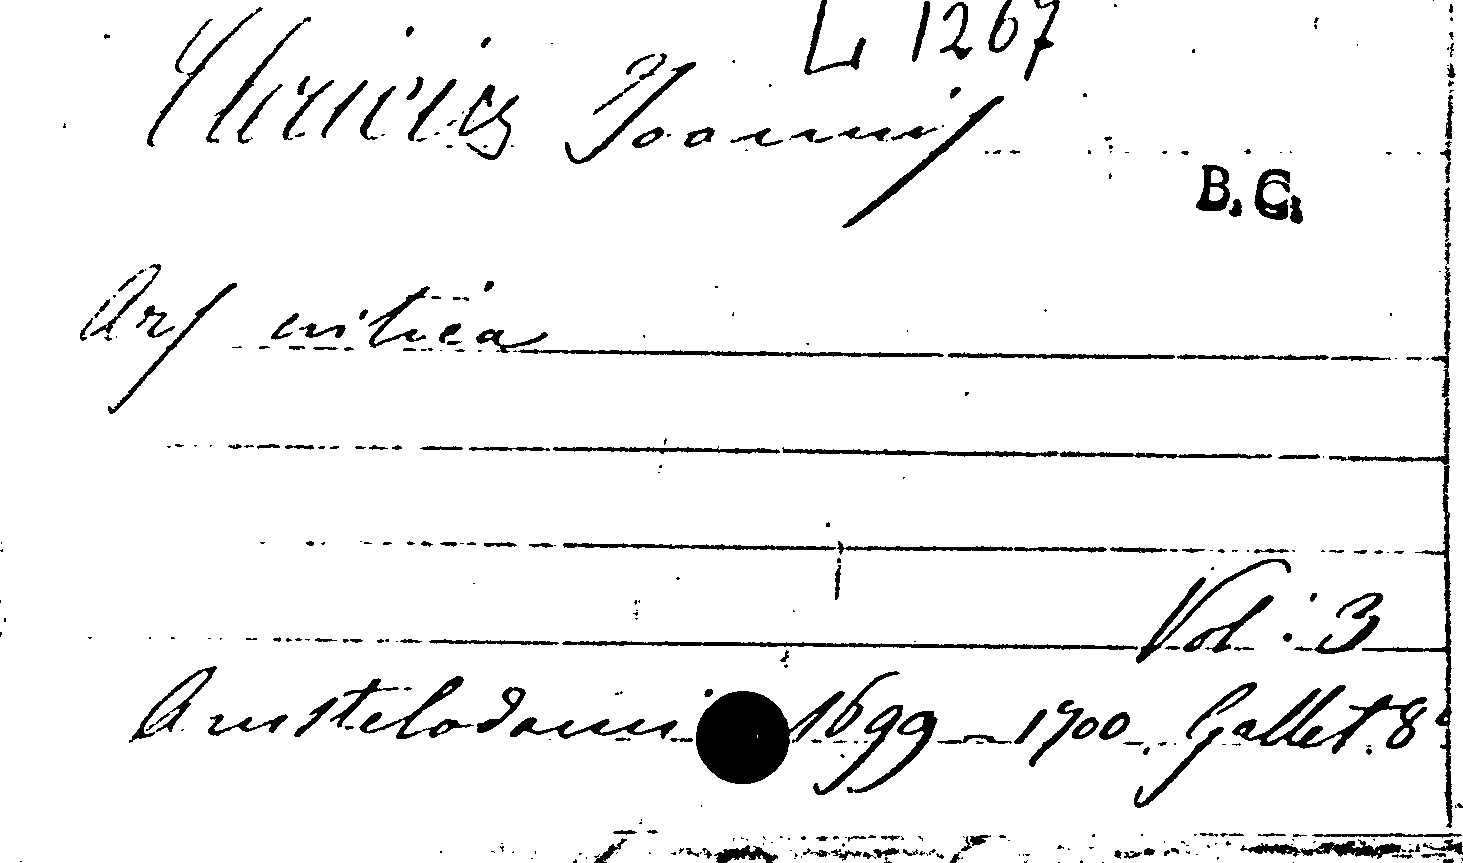 L 1267
Clerici Joannis
B.C.
Ars critica
Vol: 3
Amstelodami 1699-1700. Gallet. 8°